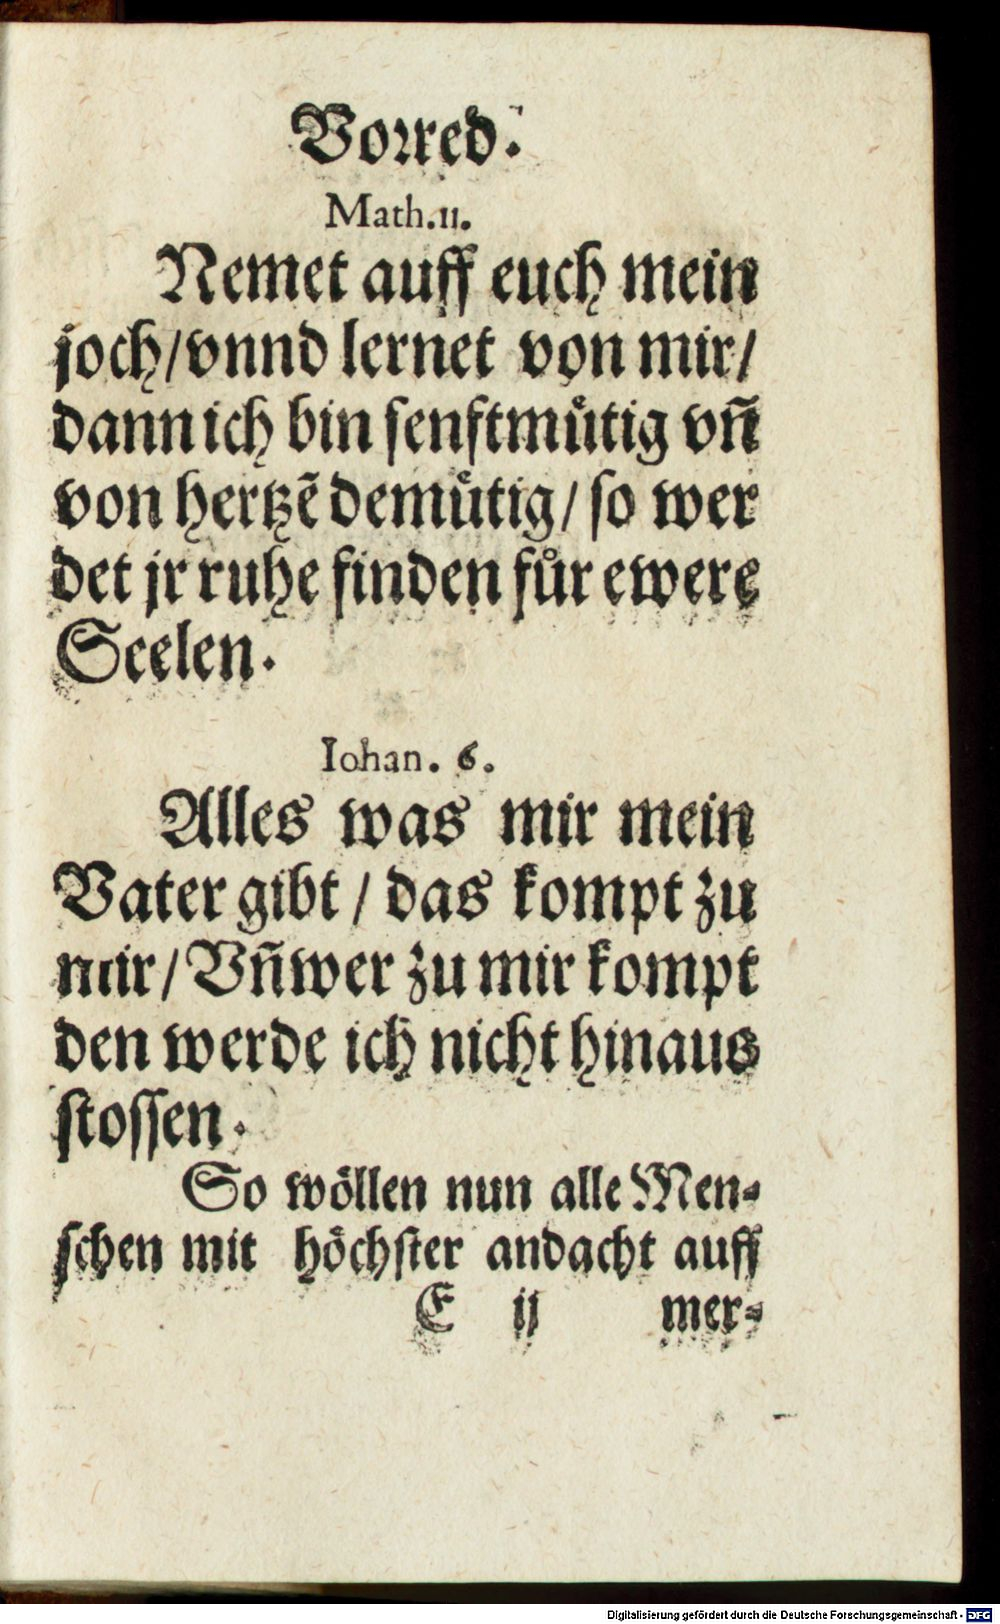 Vorred.
Math.11.
Nemet auff euch mein
joch/vnnd lernet von mir/
dann ich bin senftmuͤtig vñ
von hertzẽ demuͤtig/ so wer
det jr ruhe finden fuͤr ewere
Seelen.
Iohan. 6.
Alles was mir mein
Vater gibt / das kompt zu
mir/ Vñ wer zu mir kompt
den werde ich nicht hinaus
stossen.
So woͤllen nun alle Men-
schen mit hoͤchster andacht auff
E ij mer-
Digitalisierung gefördert durch die Deutsche Forschungsgemeinschaft - DFG